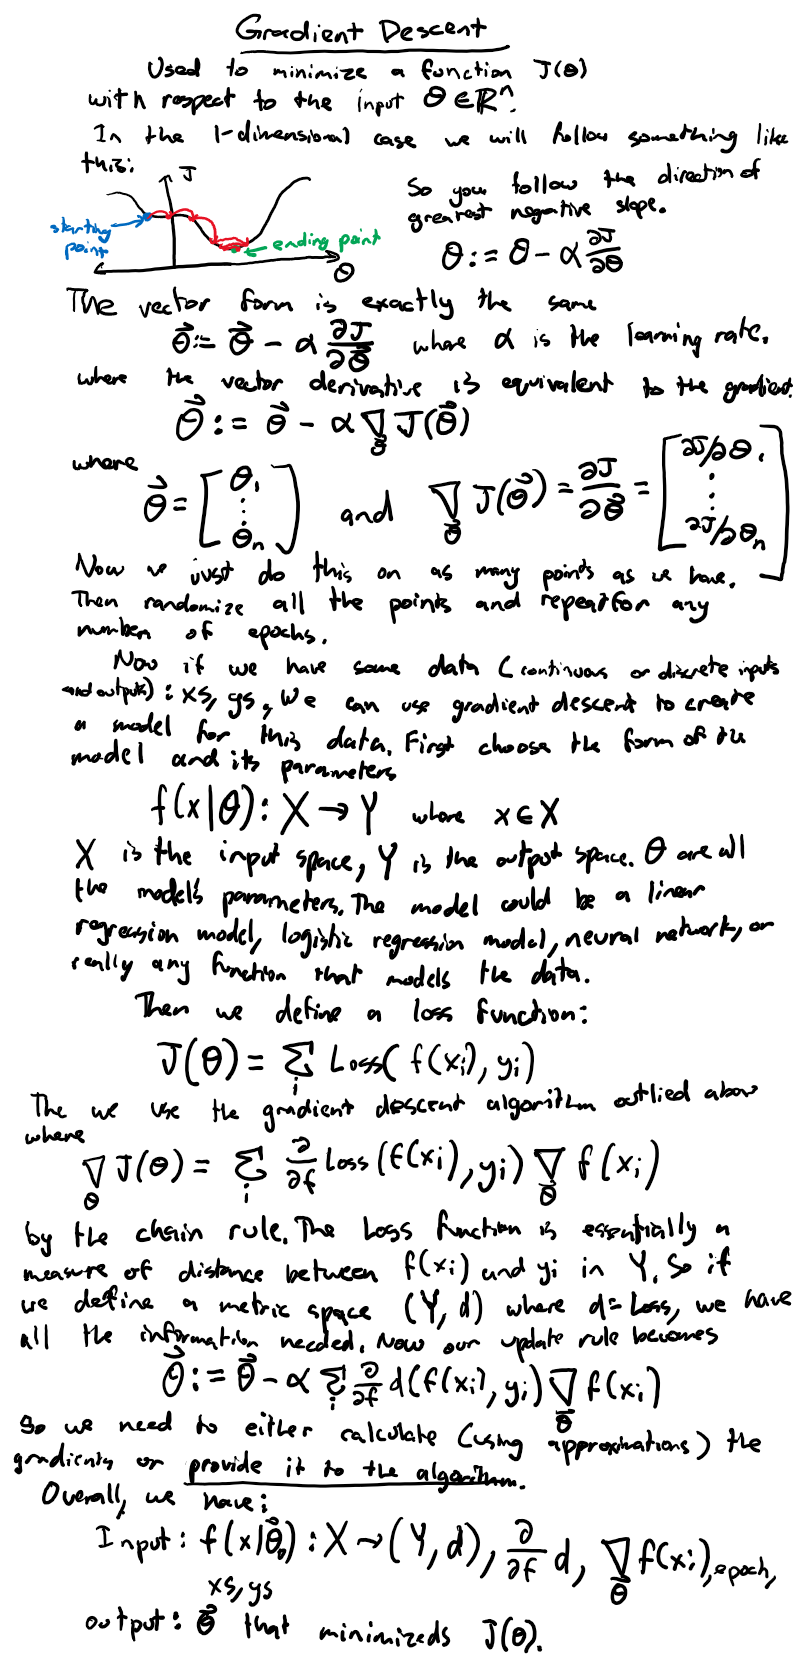 Gradient Descent
Used to minimize a function J(θ)
with respect to the input θ∈ℝⁿ.
In the 1-dimensional case we will follow something like
this:
J
starting
point
ending point
θ
So you follow the direction of
greatest negative slope.
θ := θ - α ∂J/∂θ
The vector form is exactly the same
θ⃗ := θ⃗ - α ∂J/∂θ⃗ where α is the learning rate.
where the vector derivative is equivalent to the gradient.
θ⃗ := θ⃗ - α ∇_θ⃗ J(θ⃗)
where
θ⃗ = [θ₁ ⋮ θₙ] and ∇_θ⃗ J(θ⃗) = ∂J/∂θ⃗ = [∂J/∂θ₁ ⋮ ∂J/∂θₙ]
Now we just do this on as many points as we have.
Then randomize all the points and repeat for any
number of epochs.
Now if we have some data (continuous or discrete inputs
and outputs) : xs, ys, we can use gradient descent to create
a model for this data. First choose the form of the
model and its parameters
f(x|θ): X → Y where x ∈ X
X is the input space, Y is the output space. θ are all
the model's parameters. The model could be a linear
regression model, logistic regression model, neural network, or
really any function that models the data.
Then we define a loss function:
J(θ) = Σ_i Loss(f(xᵢ), yᵢ)
The we use the gradient descent algorithm outlied above
where
∇_θ J(θ) = Σ_i ∂/∂f Loss(f(xᵢ), yᵢ) ∇_θ⃗ f(xᵢ)
by the chain rule. The Loss function is essentially a
measure of distance between f(xᵢ) and yᵢ in Y. So if
we define a metric space (Y, d) where d = Loss, we have
all the information needed. Now our update rule becomes
θ⃗ := θ⃗ - α Σ_i ∂/∂f d(f(xᵢ), yᵢ) ∇_θ⃗ f(xᵢ)
So we need to either calculate (using approximations) the
gradients or provide it to the algorithm.
Overall, we have:
Input: f(x|θ⃗₀) : X → (Y, d), ∂/∂f d, ∇_θ⃗ f(xᵢ), epoch,
xs, ys
output: θ⃗ that minimizeds J(θ).